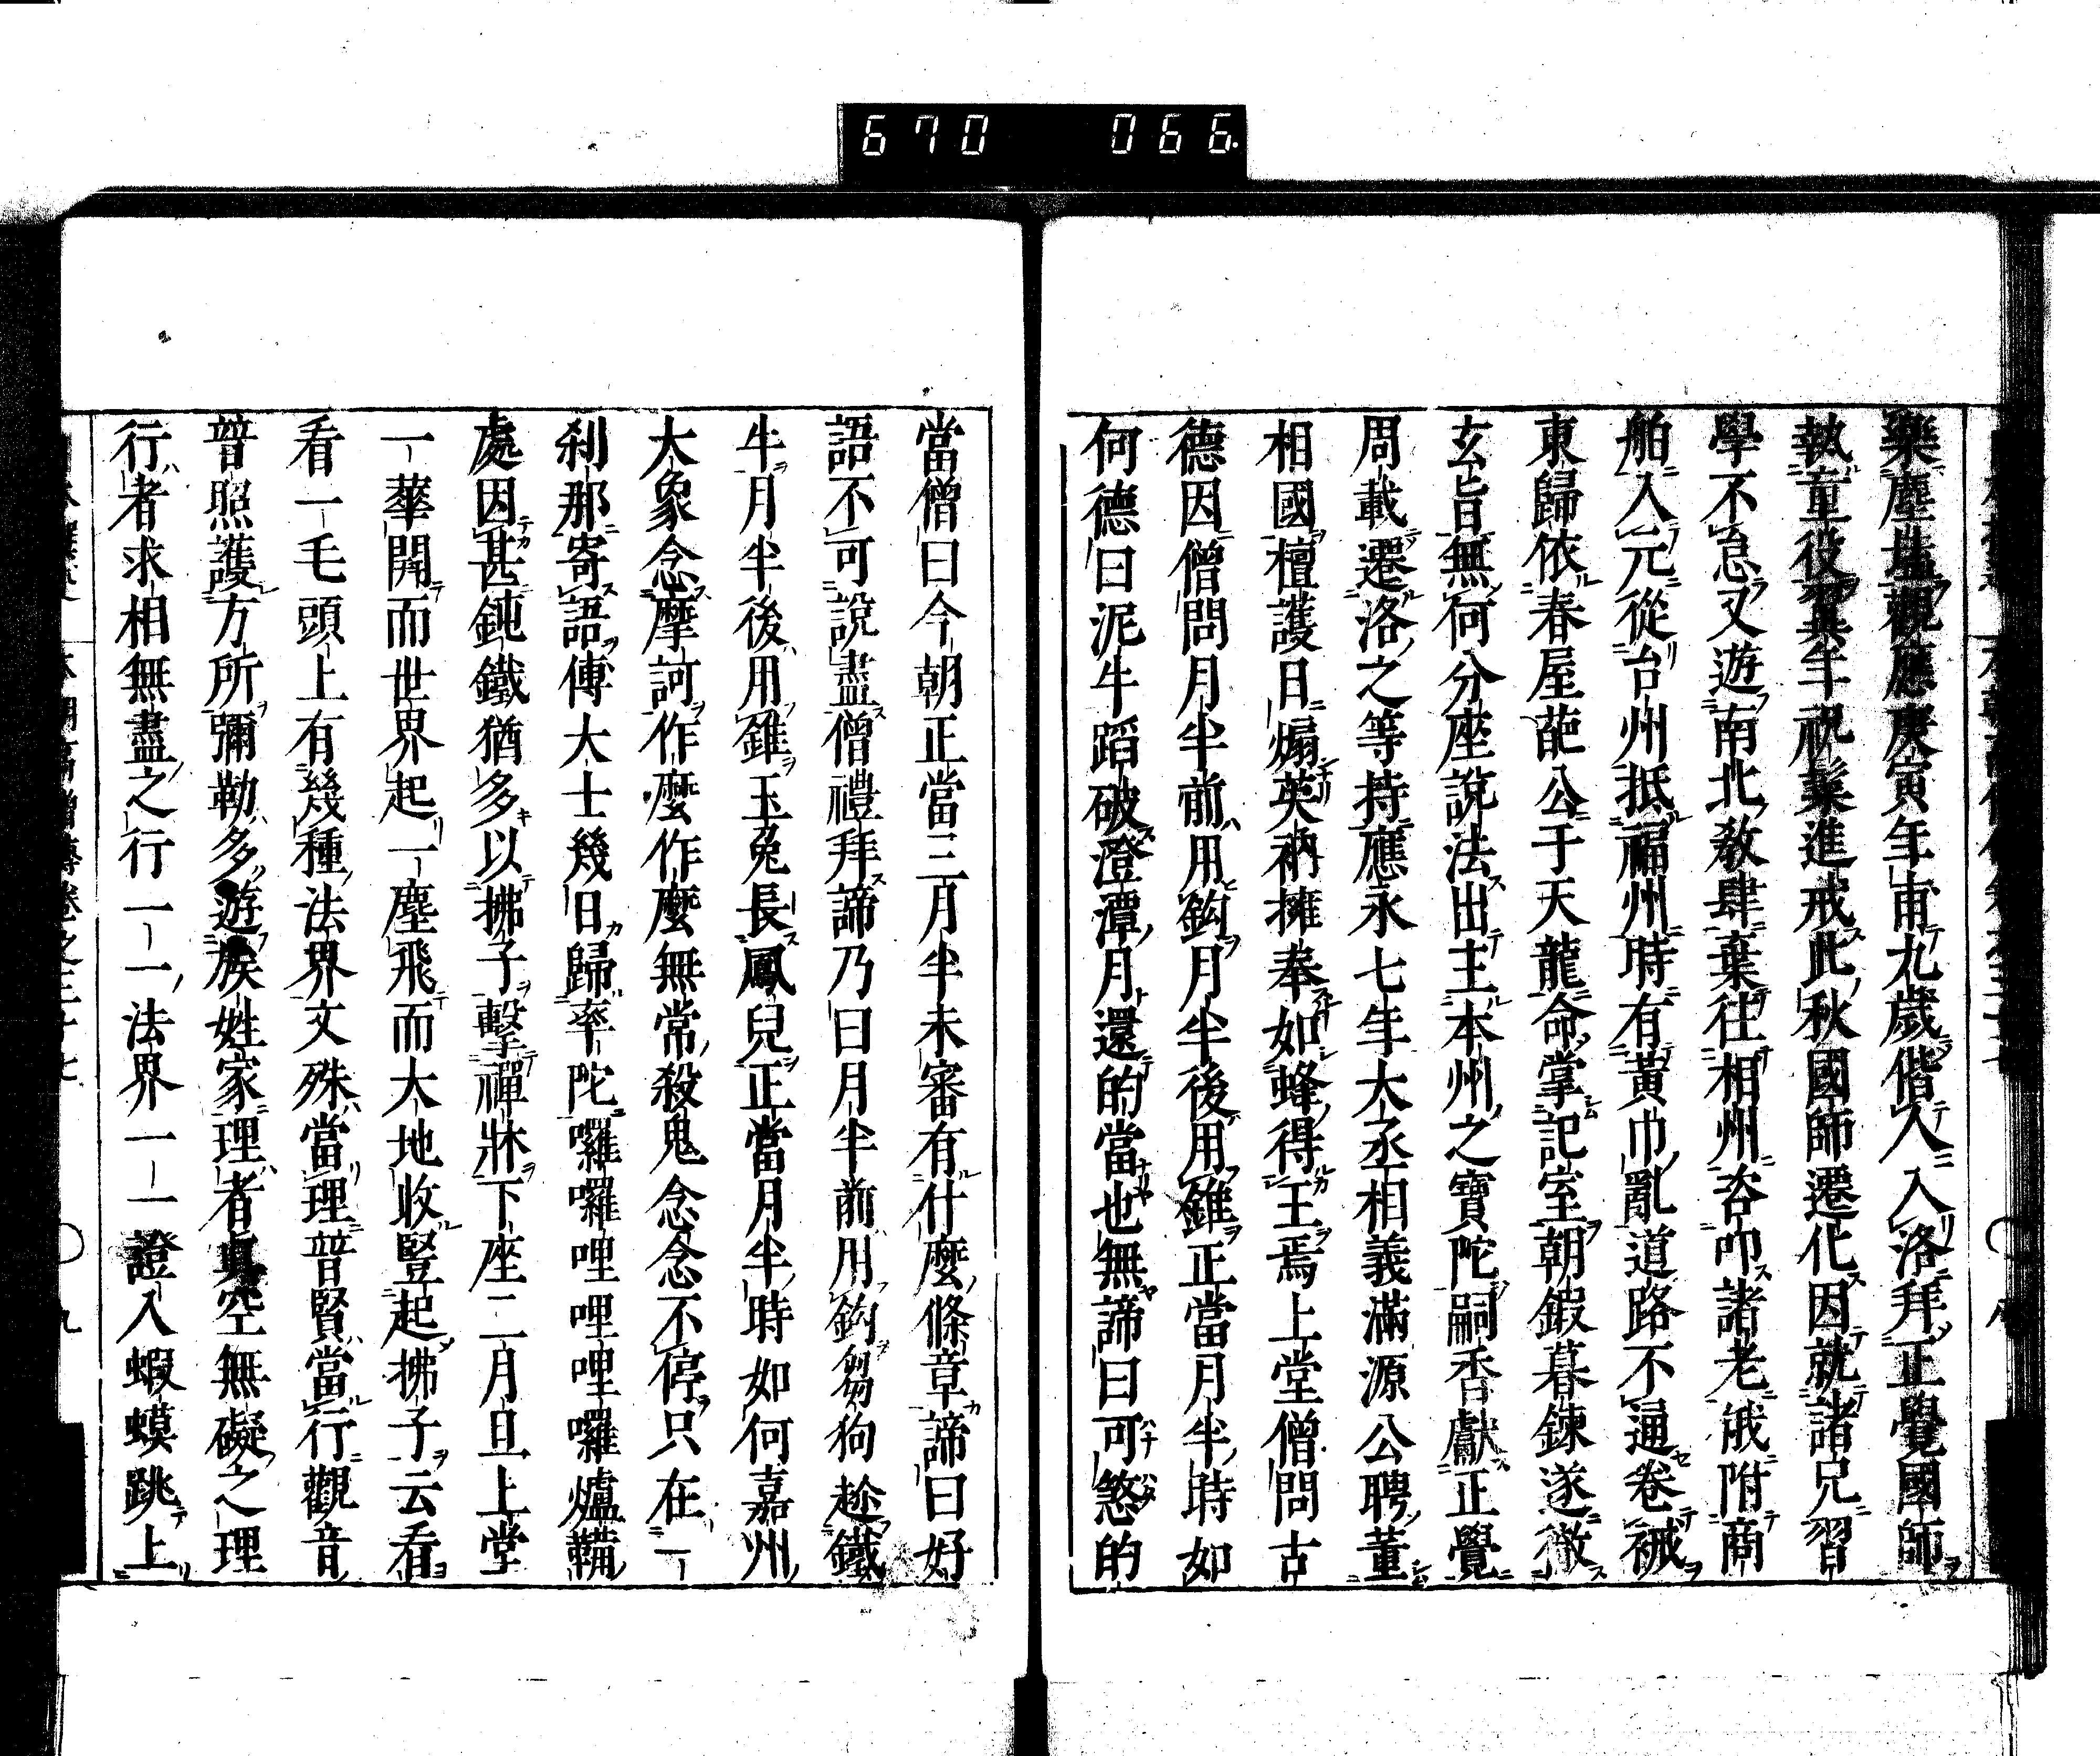 670 066
樂塵壒觀應庚寅年甫九歲偕人入洛拜正覺國師
執童役其年祝髮進戒此秋國師遷化因就諸兄習
學不怠又遊南北敎肆棄徃相州咨叩諸老俄附商
舶入元從台州抵福州時有黃巾亂道路不通卷裓
東歸依春屋葩公于天龍命掌記室朝鍜暮鍊遂徹
玄旨無何分座說法出主本州之寶陀嗣香獻正覺
周載遷洛之等持應永七年大丞相義滿源公聘董
相國檀護日煽英衲擁奉如蜂得王焉上堂僧問古
德因僧問月半前用鈎月半後用錐正當月半時如
何德曰泥牛蹈破澄潭月還的當也無諦曰可煞的
當僧曰今朝正當三月半未審有什麼條章諦曰好
語不可說盡僧禮拜諦乃曰月半前用鈎芻狗趂鐵
牛月半後用錐玉兔長鳳兒正當月半時如何嘉州
大象念摩訶作麼作麼無常殺鬼念念不停只在一
刹那寄語傅大士幾日歸率陀囉囉哩哩哩囉爐韝
處因甚鈍鐵猶多以拂子擊禪牀下座二月旦上堂
一華開而世界起一塵飛而大地收豎起拂子云看
看一毛頭上有幾種法界文殊當理普賢當行觀音
普照護方所彌勒多遊族姓家理者眞空無礙之理
行者求相無盡之行一一法界一一證入蝦蟆跳上
九